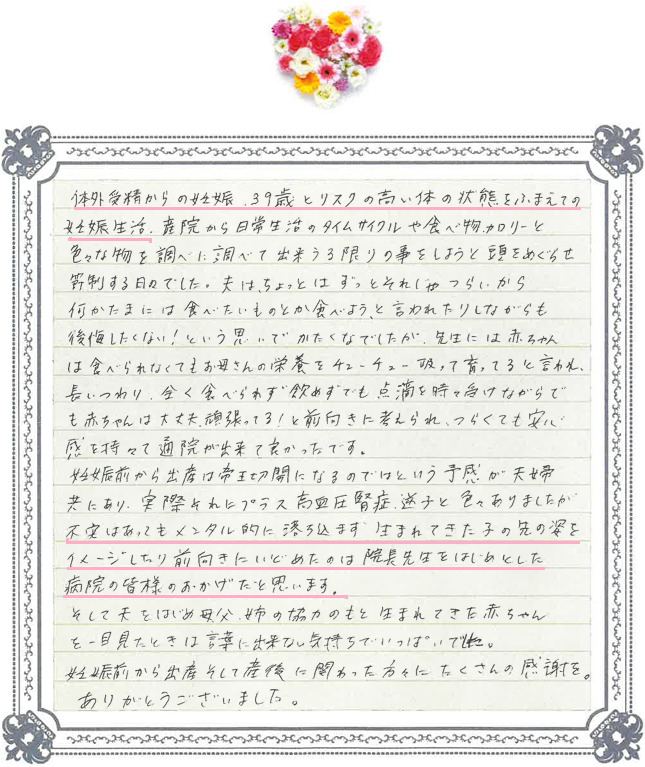 体外受精からの妊娠、39歳とリスクの高い体の状態をふまえての
妊娠生活、産院から日常生活のタイムサイクルや食べ物、カロリーと
色々な物を調べに調べて出来うる限りの事をしようと頭をめぐらせ
管制する日々でした。夫は、ちょっとはずっとそれじゃつらいから
何かたまには食べたいものとか食べよう、と言われたりしながらも
後悔したくない！という思いでかたくなでしたが、先生には赤ちゃん
は食べられなくてもお母さんの栄養をチューチュー吸って育ってると言われ、
長いつわり、全く食べられず飲めずでも点滴を時々受けながらで
も赤ちゃんは大丈夫、頑張ってる！と前向きに考えられ、つらくても安心
感を持々て通院が出来て良かったです。
妊娠前から出産は帝王切開になるのではという予感が夫婦
共にあり、実際それにプラス高血圧腎症、逆子と色々ありましたが
不安はあってもメンタル的に落ち込まず生まれてきた子の先の姿を
イメージしたり前向きにいどめたのは院長先生をはじめとした
病院の皆様のおかげだと思います。
そして夫をはじめ母父、姉の協力のもと生まれてきた赤ちゃん
を一目見たときは言葉に出来ない気持ちでいっぱいでした。
妊娠前から出産そして産後に関わった方々にたくさんの感謝を。
ありがとうございました。